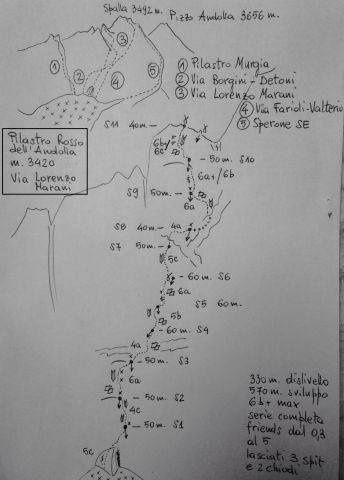 Spalla 3492 m. Pizzo Andolla 3656 m.
3
1
2
4
5
1 Pilastro Murgia
2 Via Borgini - Detoni
3 Via Lorenzo Marani
4 Via Farioli-Valterio
5 Sperone SE
Pilastro Rosso
dell'Andolla
m. 3420
Via Lorenzo
Marani
S11 40m.
6b+
6c
50m. S10
6a+/6b
S9 50m.
6a
S8 40m. 4a
S7 50m.
5c
60m. S6
6a
S5 60m.
5b
60m. S4
4a
50m. S3
6a
50m. S2
4c
50m. S1
5c
330m. dislivello
570m. sviluppo
6b+ max
serie completa
friends dal 0,3
al 5
lasciati 3 spit
e 2 chiodi